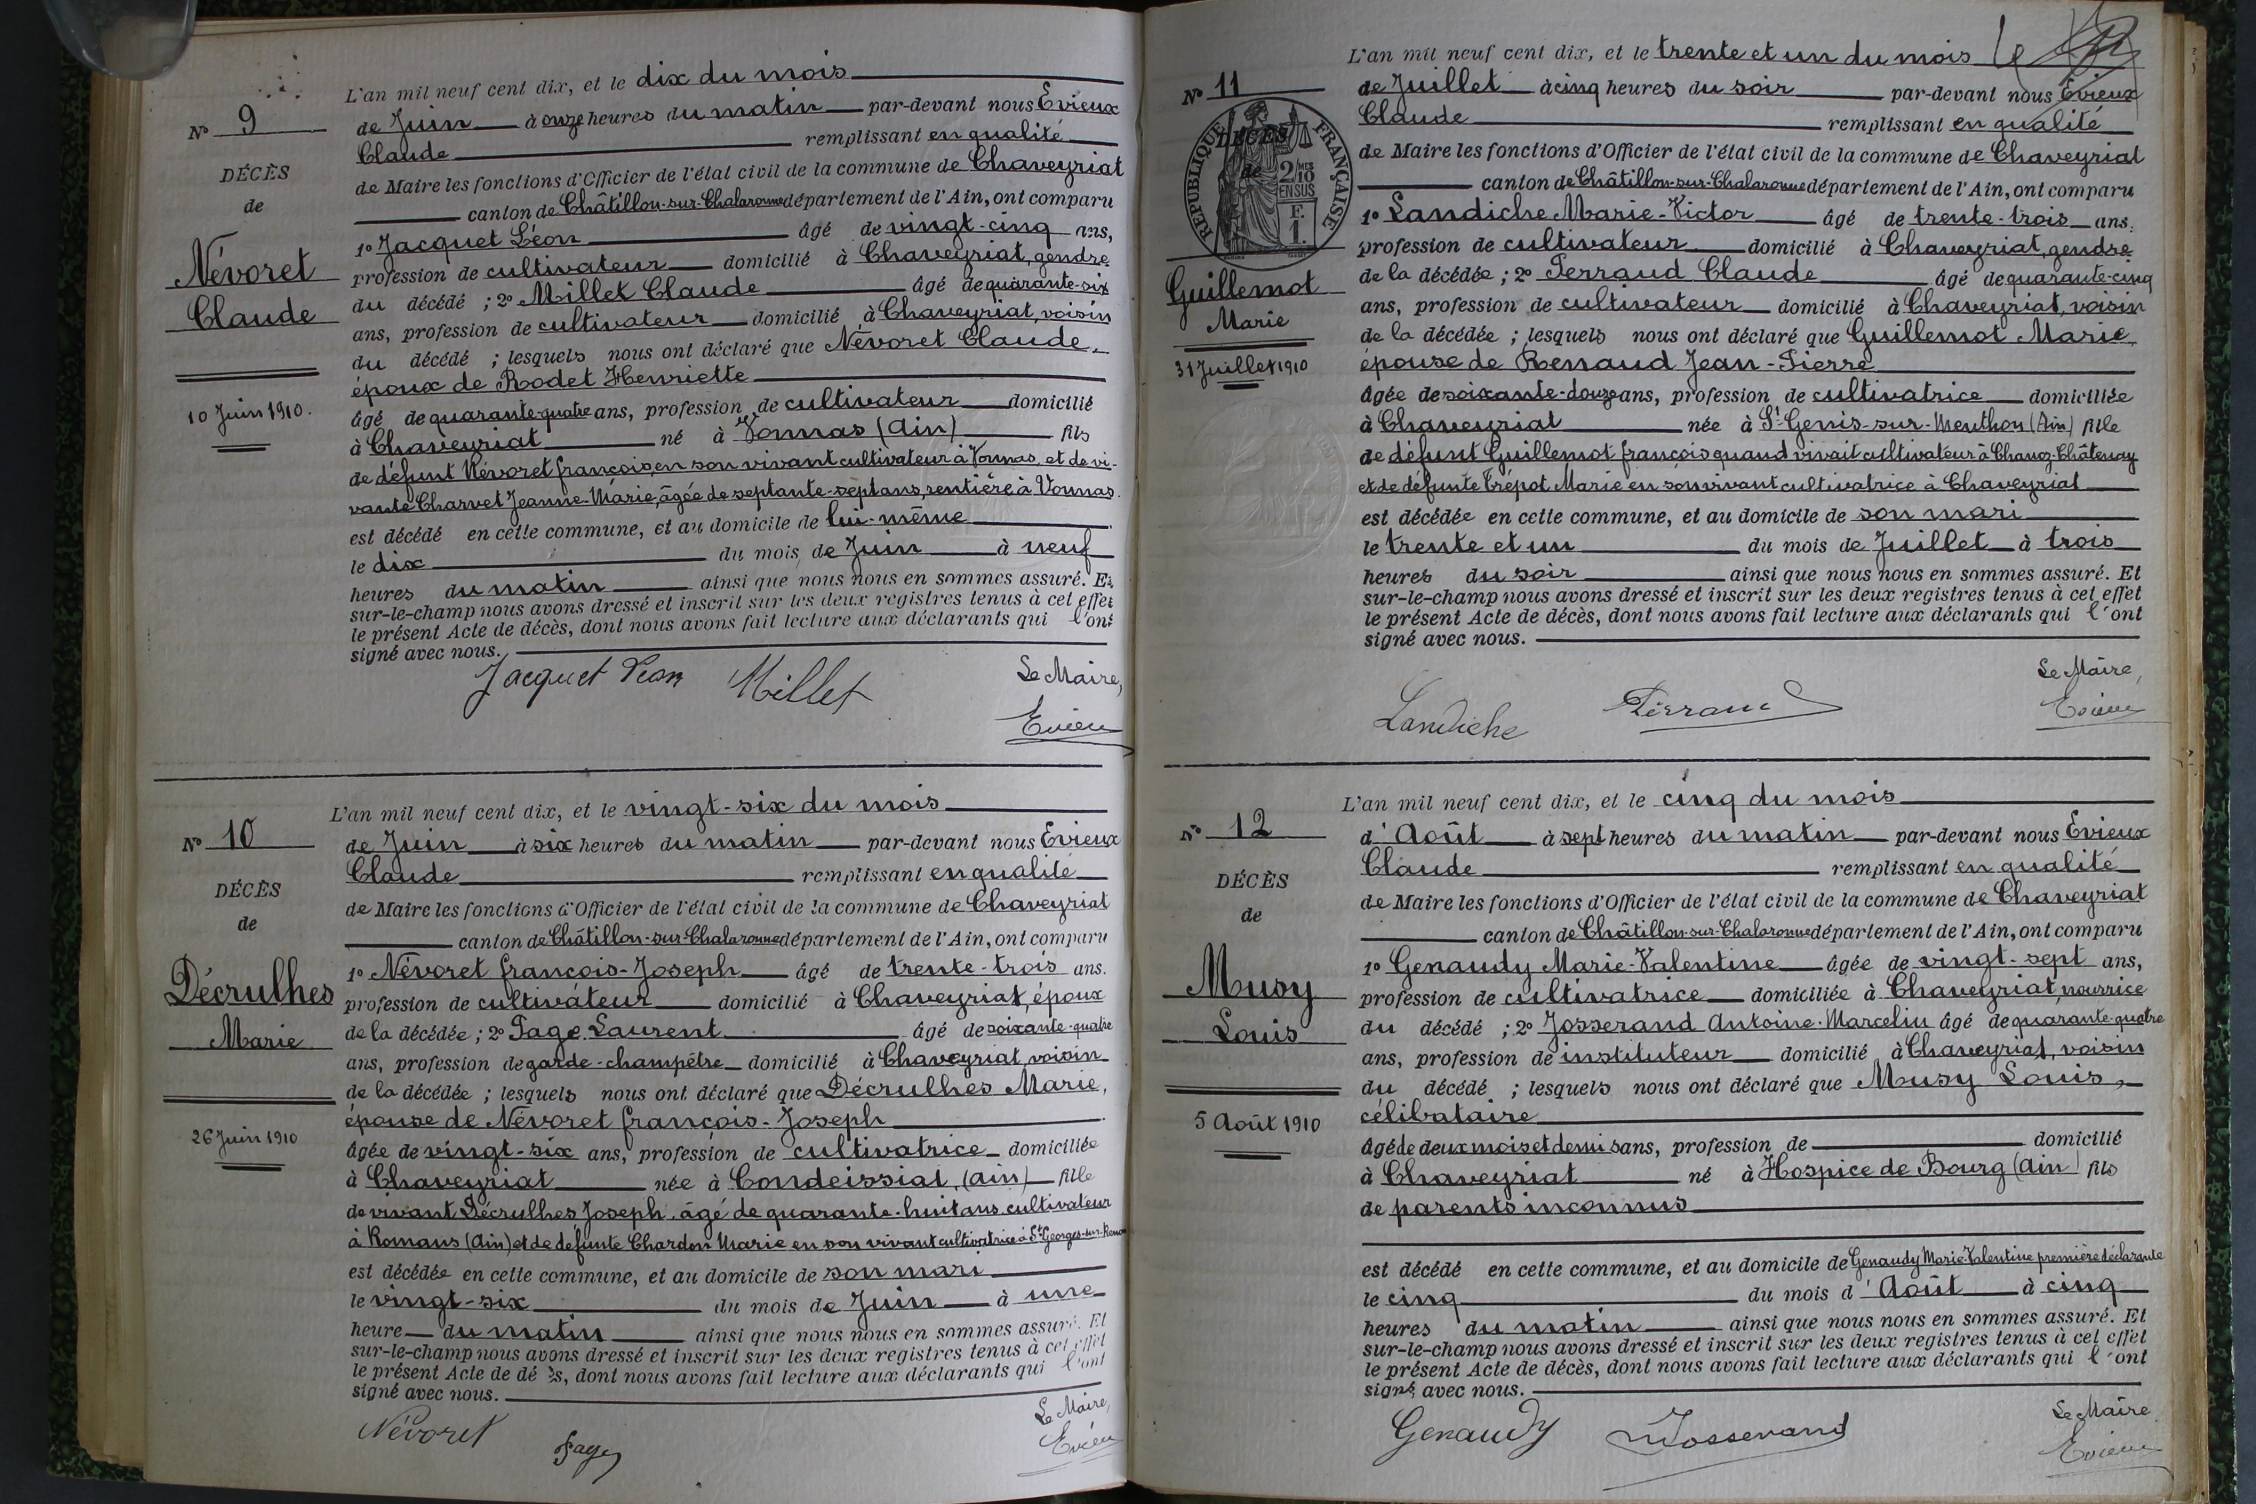 L'an mil neuf cent dix, et le dix du mois
N° 9
de Juin à onze heures du matin par-devant nous Evieux
Claude remplissant en qualité
DÉCÈS
de Maire les fonctions d'Officier de l'état civil de la commune de Chaveyriat
de
canton de Châtillon-sur-Chalaronne département de l'Ain, ont comparu
1° Jacquet Léon âgé de vingt-cinq ans,
Névoret
profession de cultivateur domicilié à Chaveyriat, gendre
Claude
du décédé ; 2° Millet Claude âgé de quarante-six
ans, profession de cultivateur domicilié à Chaveyriat, voisin
du décédé ; lesquels nous ont déclaré que Névoret Claude,
époux de Rodet Henriette
10 Juin 1910.
âgé de quarante-quatre ans, profession de cultivateur domicilié
à Chaveyriat né à Vonnas (Ain) fils
de défunt Névoret françois, en son vivant cultivateur à Vonnas, et de vi-
vante Charvet Jeanne-Marie, âgée de septante-sept ans, rentière à Vonnas.
est décédé en cette commune, et au domicile de lui-même
le dix du mois de Juin à neuf
heures du matin ainsi que nous nous en sommes assuré. Et
sur-le-champ nous avons dressé et inscrit sur les deux registres tenus à cet effet
le présent Acte de décès, dont nous avons fait lecture aux déclarants qui l'ont
signé avec nous.
Jacquet Léon Millet Le Maire,
Evieux
L'an mil neuf cent dix, et le vingt-six du mois
N° 10
de Juin à six heures du matin par-devant nous Evieux
Claude remplissant en qualité
DÉCÈS
de Maire les fonctions d'Officier de l'état civil de la commune de Chaveyriat
de
canton de Châtillon-sur-Chalaronne département de l'Ain, ont comparu
1° Névoret françois-Joseph âgé de trente-trois ans.
Décrulhes
profession de cultivateur domicilié à Chaveyriat, époux
Marie
de la décédée ; 2° Page Laurent âgé de soixante-quatre
ans, profession de garde-champêtre domicilié à Chaveyriat, voisin
de la décédée ; lesquels nous ont déclaré que Décrulhes Marie,
épouse de Névoret françois-Joseph
26 Juin 1910
âgée de vingt-six ans, profession de cultivatrice domiciliée
à Chaveyriat née à Condeissiat, (Ain) fille
de vivant Décrulhes Joseph, âgé de quarante-huit ans, cultivateur
à Romans (Ain) et de défunte Chardon Marie en son vivant cultivatrice à St Georges-sur-Renon
est décédée en cette commune, et au domicile de son mari
le vingt-six du mois de Juin à une
heure du matin ainsi que nous nous en sommes assuré. Et
sur-le-champ nous avons dressé et inscrit sur les deux registres tenus à cet effet
le présent Acte de dé ès, dont nous avons fait lecture aux déclarants qui l'ont
signé avec nous.
Névoret Page Le Maire,
Evieux
L'an mil neuf cent dix, et le trente et un du mois
N° 11
de Juillet à cinq heures du soir par-devant nous Evieux
Claude remplissant en qualité
RÉPUBLIQUE FRANÇAISE
2/10 MES EN SUS
F. 1.
DÉCÈS
de Maire les fonctions d'Officier de l'état civil de la commune de Chaveyriat
de
canton de Châtillon-sur-Chalaronne département de l'Ain, ont comparu
1° Landiche Marie-Victor âgé de trente-trois ans.
profession de cultivateur domicilié à Chaveyriat, gendre
Guillemot
de la décédée ; 2° Perraud Claude âgé de quarante-cinq
Marie
ans, profession de cultivateur domicilié à Chaveyriat, voisin
de la décédée ; lesquels nous ont déclaré que Guillemot Marie,
31 Juillet 1910
épouse de Renaud Jean-Pierre
âgée de soixante-douze ans, profession de cultivatrice domiciliée
à Chaveyriat née à St Genis-sur-Menthon (Ain) fille
de défunt Guillemot françois quand vivait cultivateur à Chanoz-Châtenay
et de défunte Trépot Marie en son vivant cultivatrice à Chaveyriat
est décédée en cette commune, et au domicile de son mari
le trente et un du mois de Juillet à trois
heures du soir ainsi que nous nous en sommes assuré. Et
sur-le-champ nous avons dressé et inscrit sur les deux registres tenus à cet effet
le présent Acte de décès, dont nous avons fait lecture aux déclarants qui l'ont
signé avec nous.
Landiche Perraud Le Maire,
Evieux
L'an mil neuf cent dix, et le cinq du mois
N° 12
d'Août à sept heures du matin par-devant nous Evieux
Claude remplissant en qualité
DÉCÈS
de Maire les fonctions d'Officier de l'état civil de la commune de Chaveyriat
de
canton de Châtillon-sur-Chalaronne département de l'Ain, ont comparu
1° Genaudy Marie-Valentine âgée de vingt-sept ans,
Musy
profession de cultivatrice domiciliée à Chaveyriat, nourrice
Louis
du décédé ; 2° Josserand Antoine-Marcelin âgé de quarante-quatre
ans, profession de instituteur domicilié à Chaveyriat, voisin
du décédé ; lesquels nous ont déclaré que Musy Louis,
5 Août 1910
célibataire
âgé de deux mois et demi ans, profession de domicilié
à Chaveyriat né à Hospice de Bourg (Ain) fils
de parents inconnus
est décédé en cette commune, et au domicile de Genaudy Marie-Valentine première déclarante
le cinq du mois d'Août à cinq
heures du matin ainsi que nous nous en sommes assuré. Et
sur-le-champ nous avons dressé et inscrit sur les deux registres tenus à cet effet
le présent Acte de décès, dont nous avons fait lecture aux déclarants qui l'ont
signé avec nous.
Genaudy Josserand Le Maire
Evieux